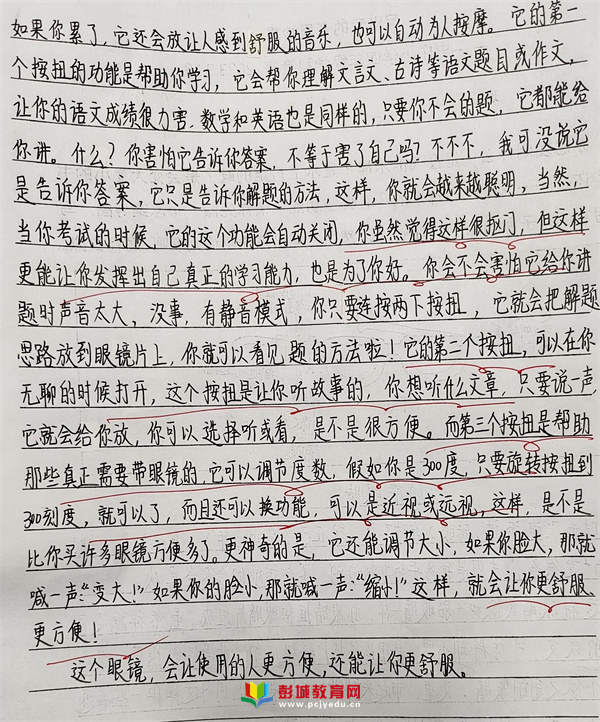 如果你累了，它还会放让人感到舒服的音乐，也可以自动为人按摩。它的第一
个按扭的功能是帮助你学习，它会帮你理解文言文、古诗等语文题目或作文，
让你的语文成绩很力害。数学和英语也是同样的，只要你不会的题，它都能给
你讲。什么？你害怕它告诉你答案，不等于害了自己吗？不不不，我可没说它
是告诉你答案，它只是告诉你解题的方法，这样，你就会越来越聪明，当然，
当你考试的时候，它的这个功能会自动关闭，你虽然觉得这样很抠门，但这样
更能让你发挥出自己真正的学习能力，也是为了你好。你会不会害怕它给你讲
题时声音太大，没事，有静音模式，你只要连按两下按扭，它就会把解题
思路放到眼镜片上，你就可以看见题的方法啦！它的第二个按扭，可以在你
无聊的时候打开，这个按扭是让你听故事的，你想听什么文章，只要说一声，
它就会给你放，你可以选择听或看，是不是很方便。而第三个按扭是帮助
那些真正需要带眼镜的，它可以调节度数，假如你是300度，只要旋转按扭到
300刻度，就可以了，而且还可以换功能，可以是近视或远视，这样，是不是
比你买许多眼镜方便多了。更神奇的是，它还能调节大小，如果你脸大，那就
喊一声：“变大！”如果你的脸小，那就喊一声：“缩小！”这样，就会让你更舒服、
更方便！
这个眼镜，会让使用的人更方便，还能让你更舒服。
彭城教育网
www.pcjyedu.cn